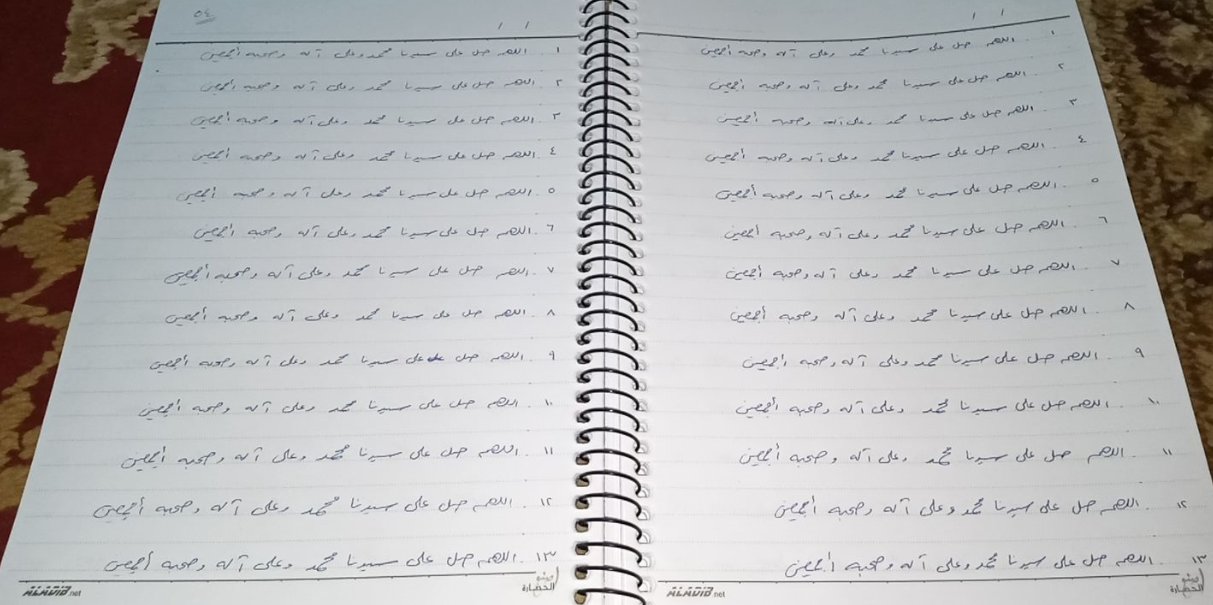 ١. اللهم صل على سيدنا محمد وعلى آله وصحبه أجمعين
٢. اللهم صل على سيدنا محمد وعلى آله وصحبه أجمعين
٣. اللهم صل على سيدنا محمد وعلى آله وصحبه أجمعين
٤. اللهم صل على سيدنا محمد وعلى آله وصحبه أجمعين
٥. اللهم صل على سيدنا محمد وعلى آله وصحبه أجمعين
٦. اللهم صل على سيدنا محمد وعلى آله وصحبه أجمعين
٧. اللهم صل على سيدنا محمد وعلى آله وصحبه أجمعين
٨. اللهم صل على سيدنا محمد وعلى آله وصحبه أجمعين
٩. اللهم صل على سيدنا محمد وعلى آله وصحبه أجمعين
١٠. اللهم صل على سيدنا محمد وعلى آله وصحبه أجمعين
١١. اللهم صل على سيدنا محمد وعلى آله وصحبه أجمعين
١٢. اللهم صل على سيدنا محمد وعلى آله وصحبه أجمعين
١٣. اللهم صل على سيدنا محمد وعلى آله وصحبه أجمعين
ALADIB.net
الحضارة
٥٤
١. اللهم صل على سيدنا محمد وعلى آله وصحبه أجمعين
٢. اللهم صل على سيدنا محمد وعلى آله وصحبه أجمعين
٣. اللهم صل على سيدنا محمد وعلى آله وصحبه أجمعين
٤. اللهم صل على سيدنا محمد وعلى آله وصحبه أجمعين
٥. اللهم صل على سيدنا محمد وعلى آله وصحبه أجمعين
٦. اللهم صل على سيدنا محمد وعلى آله وصحبه أجمعين
٧. اللهم صل على سيدنا محمد وعلى آله وصحبه أجمعين
٨. اللهم صل على سيدنا محمد وعلى آله وصحبه أجمعين
٩. اللهم صل على سيدنا محمد وعلى آله وصحبه أجمعين
١٠. اللهم صل على سيدنا محمد وعلى آله وصحبه أجمعين
١١. اللهم صل على سيدنا محمد وعلى آله وصحبه أجمعين
١٢. اللهم صل على سيدنا محمد وعلى آله وصحبه أجمعين
١٣. اللهم صل على سيدنا محمد وعلى آله وصحبه أجمعين
ALADIB.net
الحضارة